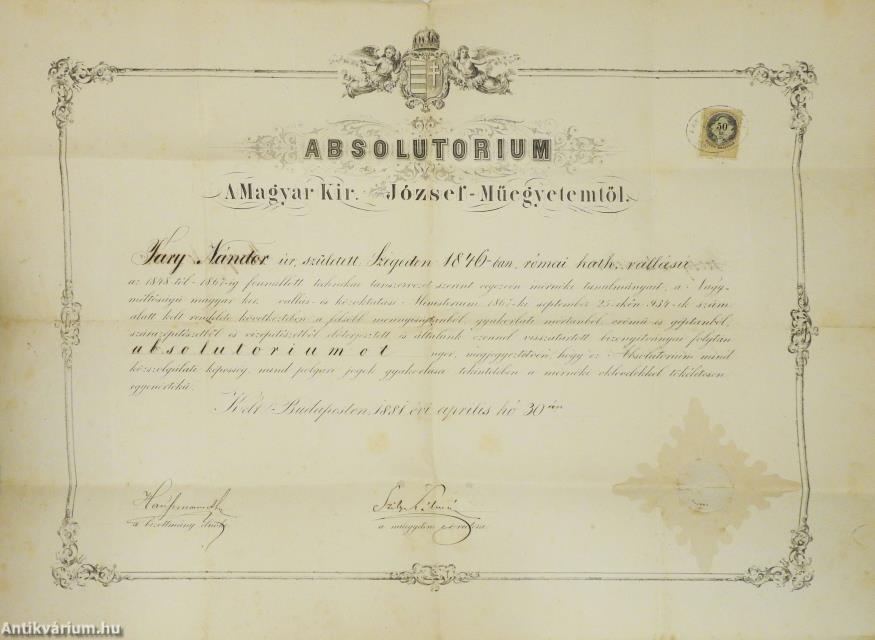 50
ABSOLUTORIUM
A Magyar Kir. József-Műegyetemtől.
Nándor úr, született Szegeden 1846-ban, római kath. vallású
az 1848-tól - 1867-ig fennállott technikai tanszervezet szerint végezvén mérnöki tanulmányait, a Nagy-
méltóságú magyar kir. vallás- és közoktatási Ministerium 1867-ki september 25-ikén 934-ik szám
alatt kelt rendelete következtében a felsőbb mennyiségtanból, gyakorlati mértanból, erőmű és géptanból,
szárazépítészetből és vízépítészetből előterjesztett és általunk ezennel visszatartott bizonyítványai folytán
absolutoriumot nyer, megjegyeztetvén, hogy ez Absolutorium mind
közszolgálati képesség mind polgári jogok gyakorlása tekintetében a mérnöki oklevelekkel tökéletesen
egyenértékű.
Kelt Budapesten, 1881 évi április hó 30-án
a bizottmány elnöke
a műegyetem
Antikvárium.hu